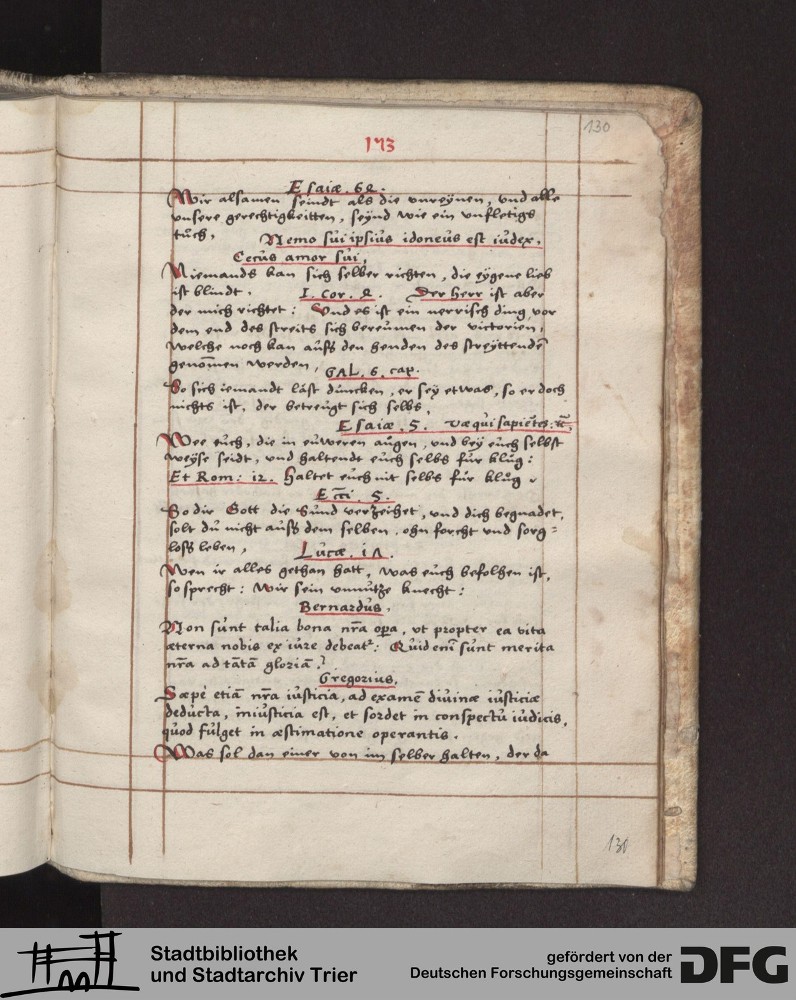 130
173
Esaiæ. 64.
Wir alsamen seindt als die vnreÿnen, vnd alle
vnsere gerechtigkeitten, seÿnd wie ein vnfletigs
tuͦch, Nemo sui ipsius idoneus est iudex.
Cecus amor sui,
Niemands kan sich selber richten, die eÿgene lieb
ist blindt. I. Cor. 4. Der Herr ist aber
der mich richtet: Vnd es ist ein nerrisch ding, vor
dem end des streits sich bereumen der victorien,
welche noch kan auß den henden des streÿttendē
genom̄en werden, GAL. 6. cap.
So sich iemandt läst duncken, er seÿ etwas, so er doch
nichts ist, der betreugt sich selbs,
Esaiæ. 5. Væ qui sapiētes: ꝛc̄,
Wee euch, die in euweren augen, vnd beÿ euch selbst
weÿse seidt, vnd haltendt euch selbs für klug:
Et Rom: 12. Haltet euch nit selbs für klug.
Ec̄ci. 5.
So dir Gott die Sund verzeihet, vnd dich begnadet,
solt du nicht auß dem selben, ohn forcht vnd sorg=
loß leben, Lucæ. 17.
Wen ir alles gethan hatt, was euch befolhen ist,
so sprecht: wir sein vnnutze knecht:
Bernardus.
Non sunt talia bona nr̄a oꝑa, vt propter ea vita
æterna nobis ex iure debeatᷣ: Quid em̄ sunt merita
nr̄a ad tātā gloriā?
Gregorius.
Sæpè etiā nr̄a iusticia, ad examē diuinæ iusticiæ
deducta, iniusticia est, et sordet in conspectu iudicis,
quod fulget in æstimatione operantis.
Was sol dan einer von im selber halten, der da
130
Stadtbibliothek
und Stadtarchiv Trier
gefördert von der
Deutschen Forschungsgemeinschaft
DFG